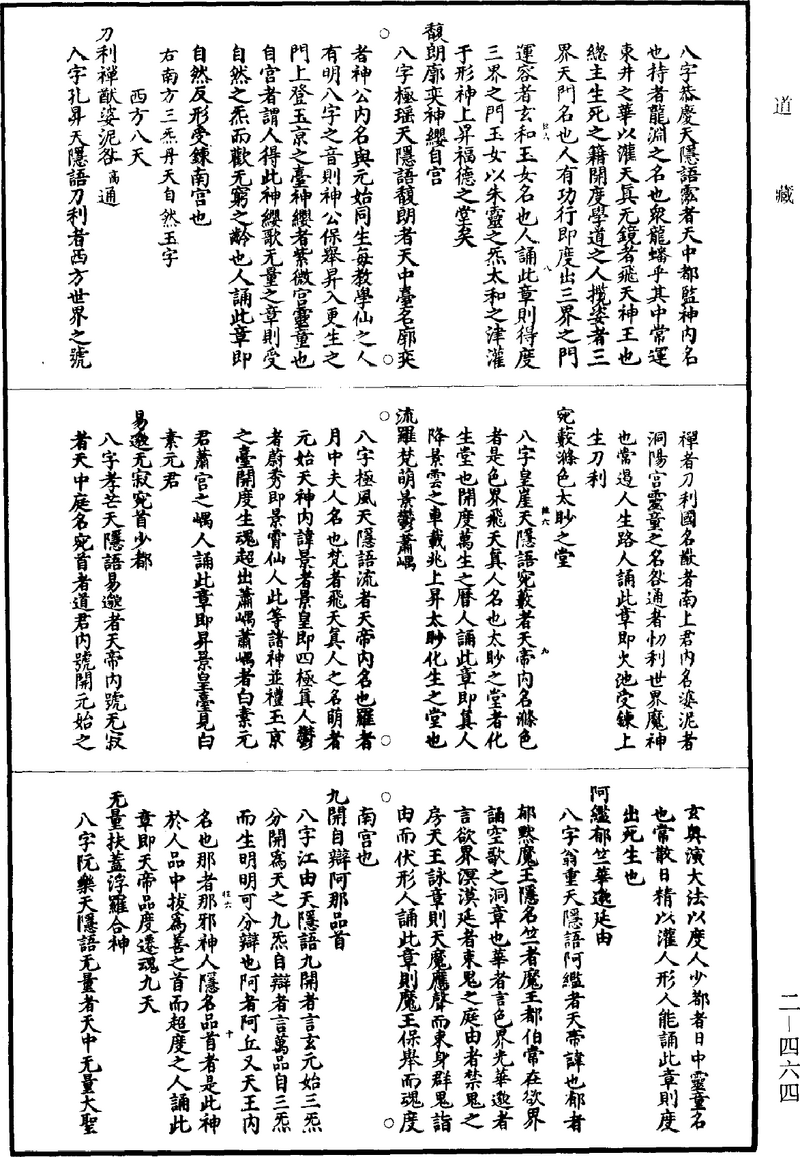 道藏
八字恭慶天隱語𩆜者天中都監神內名
也持者龍淵之名也衆龍蟠乎其中常運
東井之華以灌天真无鏡者飛天神王也
總主生死之籍開度學道之人攬姿者三
界天門名也人有功行即度出三界之門
運容者玄和玉女名也人誦此章則得度
三界之門玉女以朱靈之炁太和之津灌
于形神上昇福德之堂矣
馥朗廓奕神纓自宮
八字極瑶天隱語馥朗者天中臺名廓奕
者神公內名與元始同生每教學仙之人
有明八字之音則神公保舉昇入更生之
門上登玉京之臺神纓者紫微宮靈童也
自宮者謂人得此神纓歌无量之章則受
自然之炁而歡无窮之齡也人誦此章即
自然反形受鍊南宮也
右南方三炁丹天自然玉字
西方八天
刀利禪猷婆泥咎通
八字孔昇天隱語刀利者西方世界之號
禪者刀利國名猷者南上君內名婆泥者
洞陽宮靈童之名咎通者忉利世界魔神
也常遏人生路人誦此章即火池受鍊上
生刀利
宛藪滌色太眇之堂
八字皇崖天隱語宛藪者天帝內名滌色
者是色界飛天真人名也太眇之堂者化
生堂也開度萬生之曆人誦此章即真人
降景雲之車載兆上昇太眇化生之堂也
流羅梵萌景鬱蕭嵎
八字極風天隱語流者天帝內名也羅者
月中夫人名也梵者飛天真人之名萌者
元始天神內諱景者景皇即四極真人鬱
者蔚秀即景霄仙人此等諸神並禮玉京
之臺開度生魂超出蕭嵎蕭嵎者白素元
君蕭宮之嵎人誦此章即昇景皇臺見白
素元君
易邈无寂宛首少都
八字孝芒天隱語易邈者天帝內號无寂
者天中庭名宛首者道君內號開元始之
玄奧演大法以度人少都者日中靈童名
也常散日精以灌人形人能誦此章則度
出死生也
阿鑑郁竺華邈延由
八字翁重天隱語阿鑑者天帝諱也郁者
郁黙魔王隱名竺者魔王都伯常在欲界
誦空歌之洞章也華者言色界光華邈者
言欲界溟漠延者束鬼之庭由者禁鬼之
房天王詠章則天魔應聲而束身群鬼詣
由而伏形人誦此章則魔王保舉而魂度
南宮也
九開自辯阿那品首
八字江由天隱語九開者言玄元始三炁
分開爲天之九炁自辯者言萬品自三炁
而生明明可分辯也阿者阿丘又天王內
名也那者那邪神人隱名品首者是此神
於人品中拔爲善之首而超度之人誦此
章即天帝品度遷魂九天
无量扶蓋浮羅合神
八字阮樂天隱語无量者天中无量大聖
二—四六四